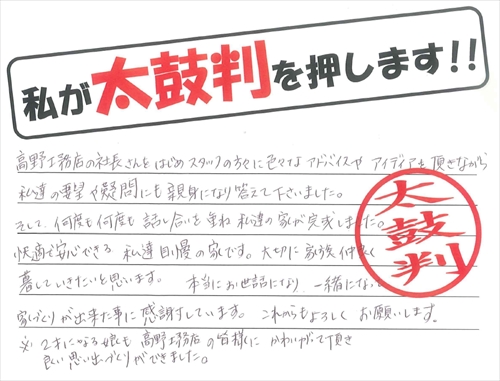 私が太鼓判を押します!!
高野工務店の社長さんをはじめスタッフの方々に色々なアドバイスや アイディアを頂きながら
私達の要望や疑問にも親身になり答えて下さいました。
そして、何度も何度も話し合いを重ね私達の家が完成しました。
快適で安心できる 私達自慢の家です。大切に家族仲良く
暮していきたいと思います。 本当にお世話になり 一緒に
家づくりが出来た事に感謝しています。これからもよろしく お願いします。
※ 2才になる娘も高野工務店の皆様に かわいがって頂き
良い思い出づくりができました。
太鼓判